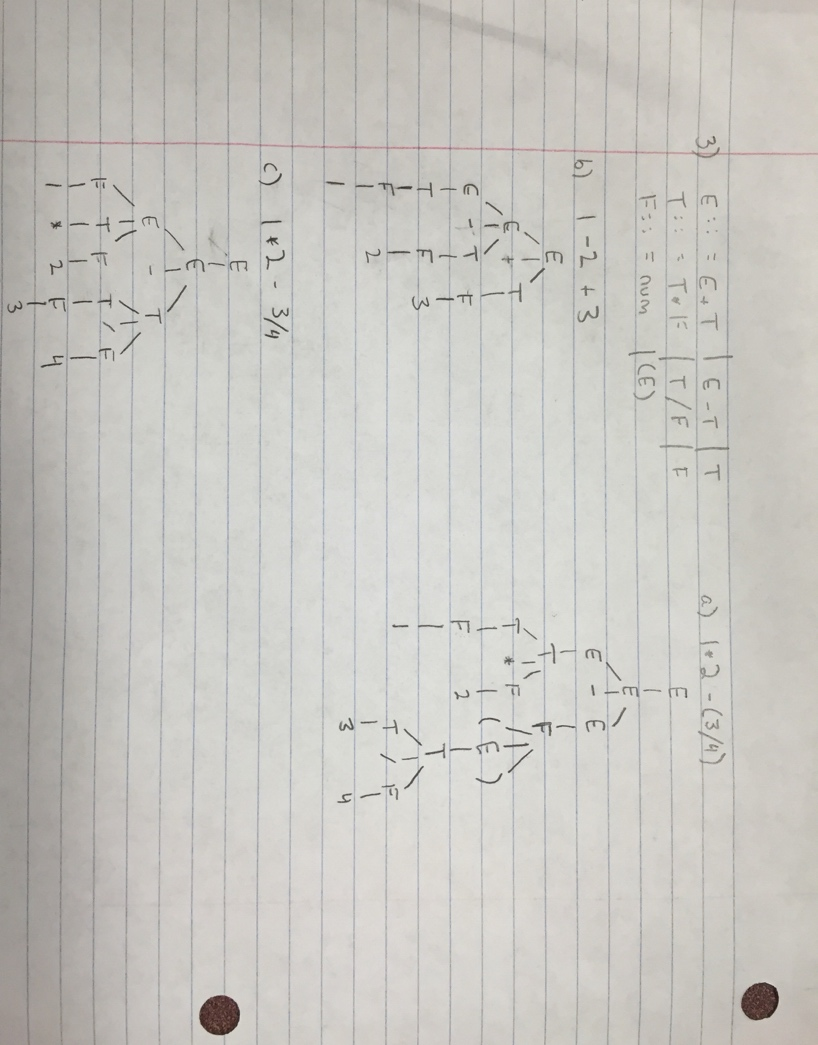 3) E::= E+T | E-T | T
T::= T*F | T/F | F
F::= num | (E)
a) 1*2-(3/4)
E
E
E - E
T F
T * F ( E )
F 2 T
1 T / F
3 4
b) 1-2+3
E
E + T
E - T F
T F 3
F 2
1
c) 1*2-3/4
E
E
E - T
F T F T / F
1 * 2 F 4
3